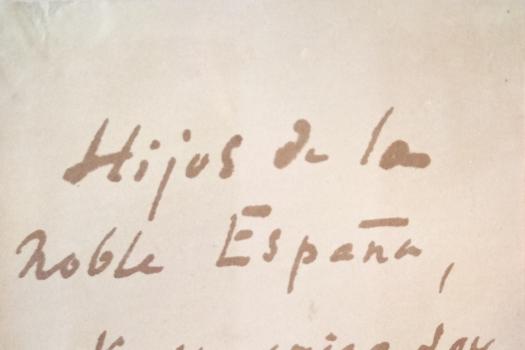 Hijos de la
noble España,